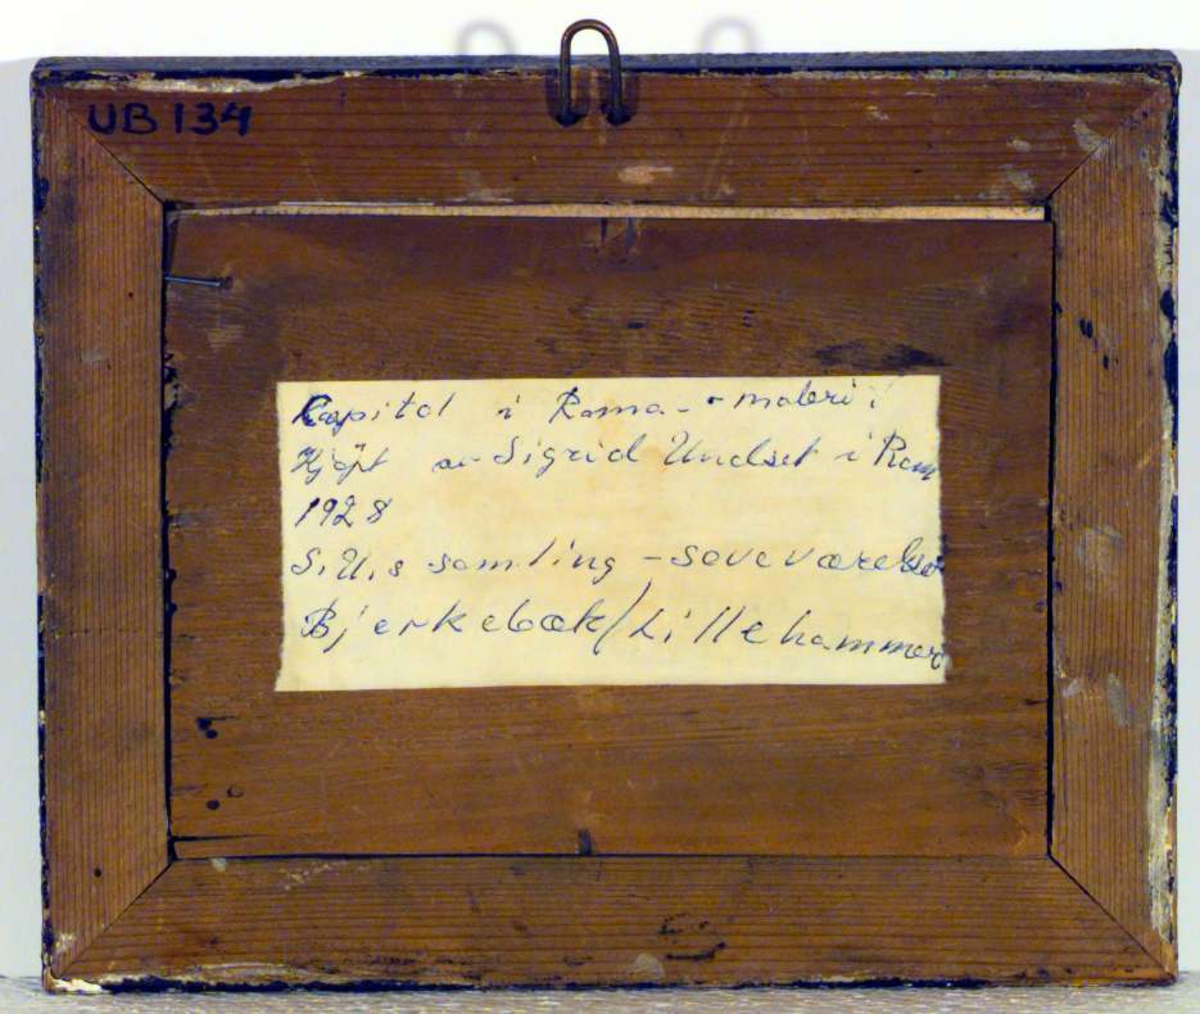 UB 134
Kapitol i Roma - maleri!
Kjøpt av Sigrid Undset i Rom
1928
S.U.s samling - soveværelse
Bjerkebæk/Lillehammer